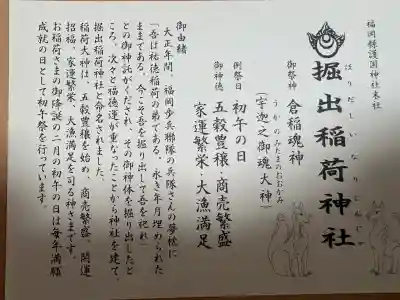 福岡縣護国神社末社
掘出稲荷神社
ほりだしいなりじんじゃ
御祭神 倉稲魂神
うかのみたまのおおかみ
(宇迦之御魂大神)
例祭日 初午の日
御神徳 五穀豊穣・商売繁盛
家運繁栄・大漁満足
御由緒
大正年間、福岡歩兵聯隊の兵隊さんの夢枕に
「吾は祐徳稲荷の弟である。永き年月埋められた
ままである。今こゝ吾を掘り出して吾を祀れ」
との御神託がくだされ、その御神体を掘り出したと
ころ、次々と福徳運が重なったことから神社を建て、
掘出稲荷神社と命名されました。
稲荷大神は、五穀豊穣を始め、商売繁盛、開運
招福、家運繁栄・大漁満足を司る神さまです。
お稲荷さまの御降誕の二月の初午の日は毎年満願
成就の日として初午祭を行っています。